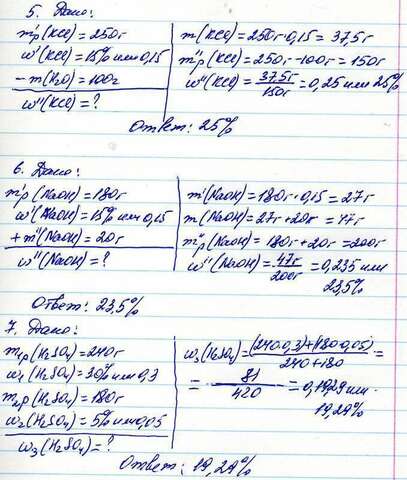 5. Дано:
m'р(KCl) = 250г
w'(KCl) = 15% или 0,15
- m(H₂O) = 100г
w''(KCl) = ?
m(KCl) = 250г·0,15 = 37,5г
m''р(KCl) = 250г - 100г = 150г
w''(KCl) = 37,5г/150г = 0,25 или 25%
Ответ: 25%
6. Дано:
m'р(NaOH) = 180г
w'(NaOH) = 15% или 0,15
+ m''(NaOH) = 20г
w''(NaOH) = ?
m'(NaOH) = 180г·0,15 = 27г
m(NaOH) = 27г + 20г = 47г
m''р(NaOH) = 180г + 20г = 200г
w''(NaOH) = 47г/200г = 0,235 или
23,5%
Ответ: 23,5%
7. Дано:
m₁р(H₂SO₄) = 240г
w₁(H₂SO₄) = 30% или 0,3
m₂р(H₂SO₄) = 180г
w₂(H₂SO₄) = 5% или 0,05
w₃(H₂SO₄) = ?
w₃(H₂SO₄) = (240·0,3)+(180·0,05)/240+180 =
= 81/420 = 0,1929 или
19,29%
Ответ: 19,29%